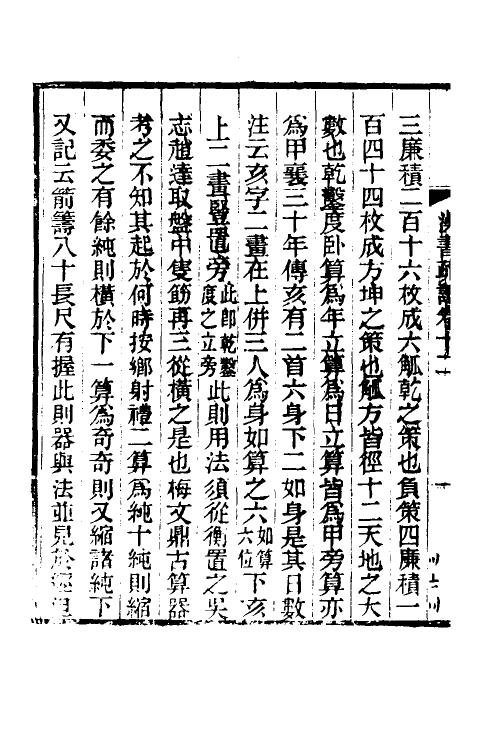 漢書疏證卷十二
三廉積二百十六枚成六觚乾之策也負策四廉積一
百四十四枚成方坤之策也觚方皆徑十二天地之大
數也乾鑿度臥算爲年立算爲日立算皆爲甲旁算亦
爲甲襄三十年傳亥有二首六身下二如身是其日數
注云亥字二畫在上併三人爲身如算之六如算六位下亥
上二畫豎置旁此卽乾鑿度之立旁此則用法須從衡置之吳
志趙達取盤中隻筯再三從橫之是也梅文鼎古算器
考之不知其起於何時按鄉射禮二算爲純十純則縮
而委之有餘純則橫於下一算爲奇奇則又縮諸純下
又記云箭籌八十長尺有握此則器與法並見於經